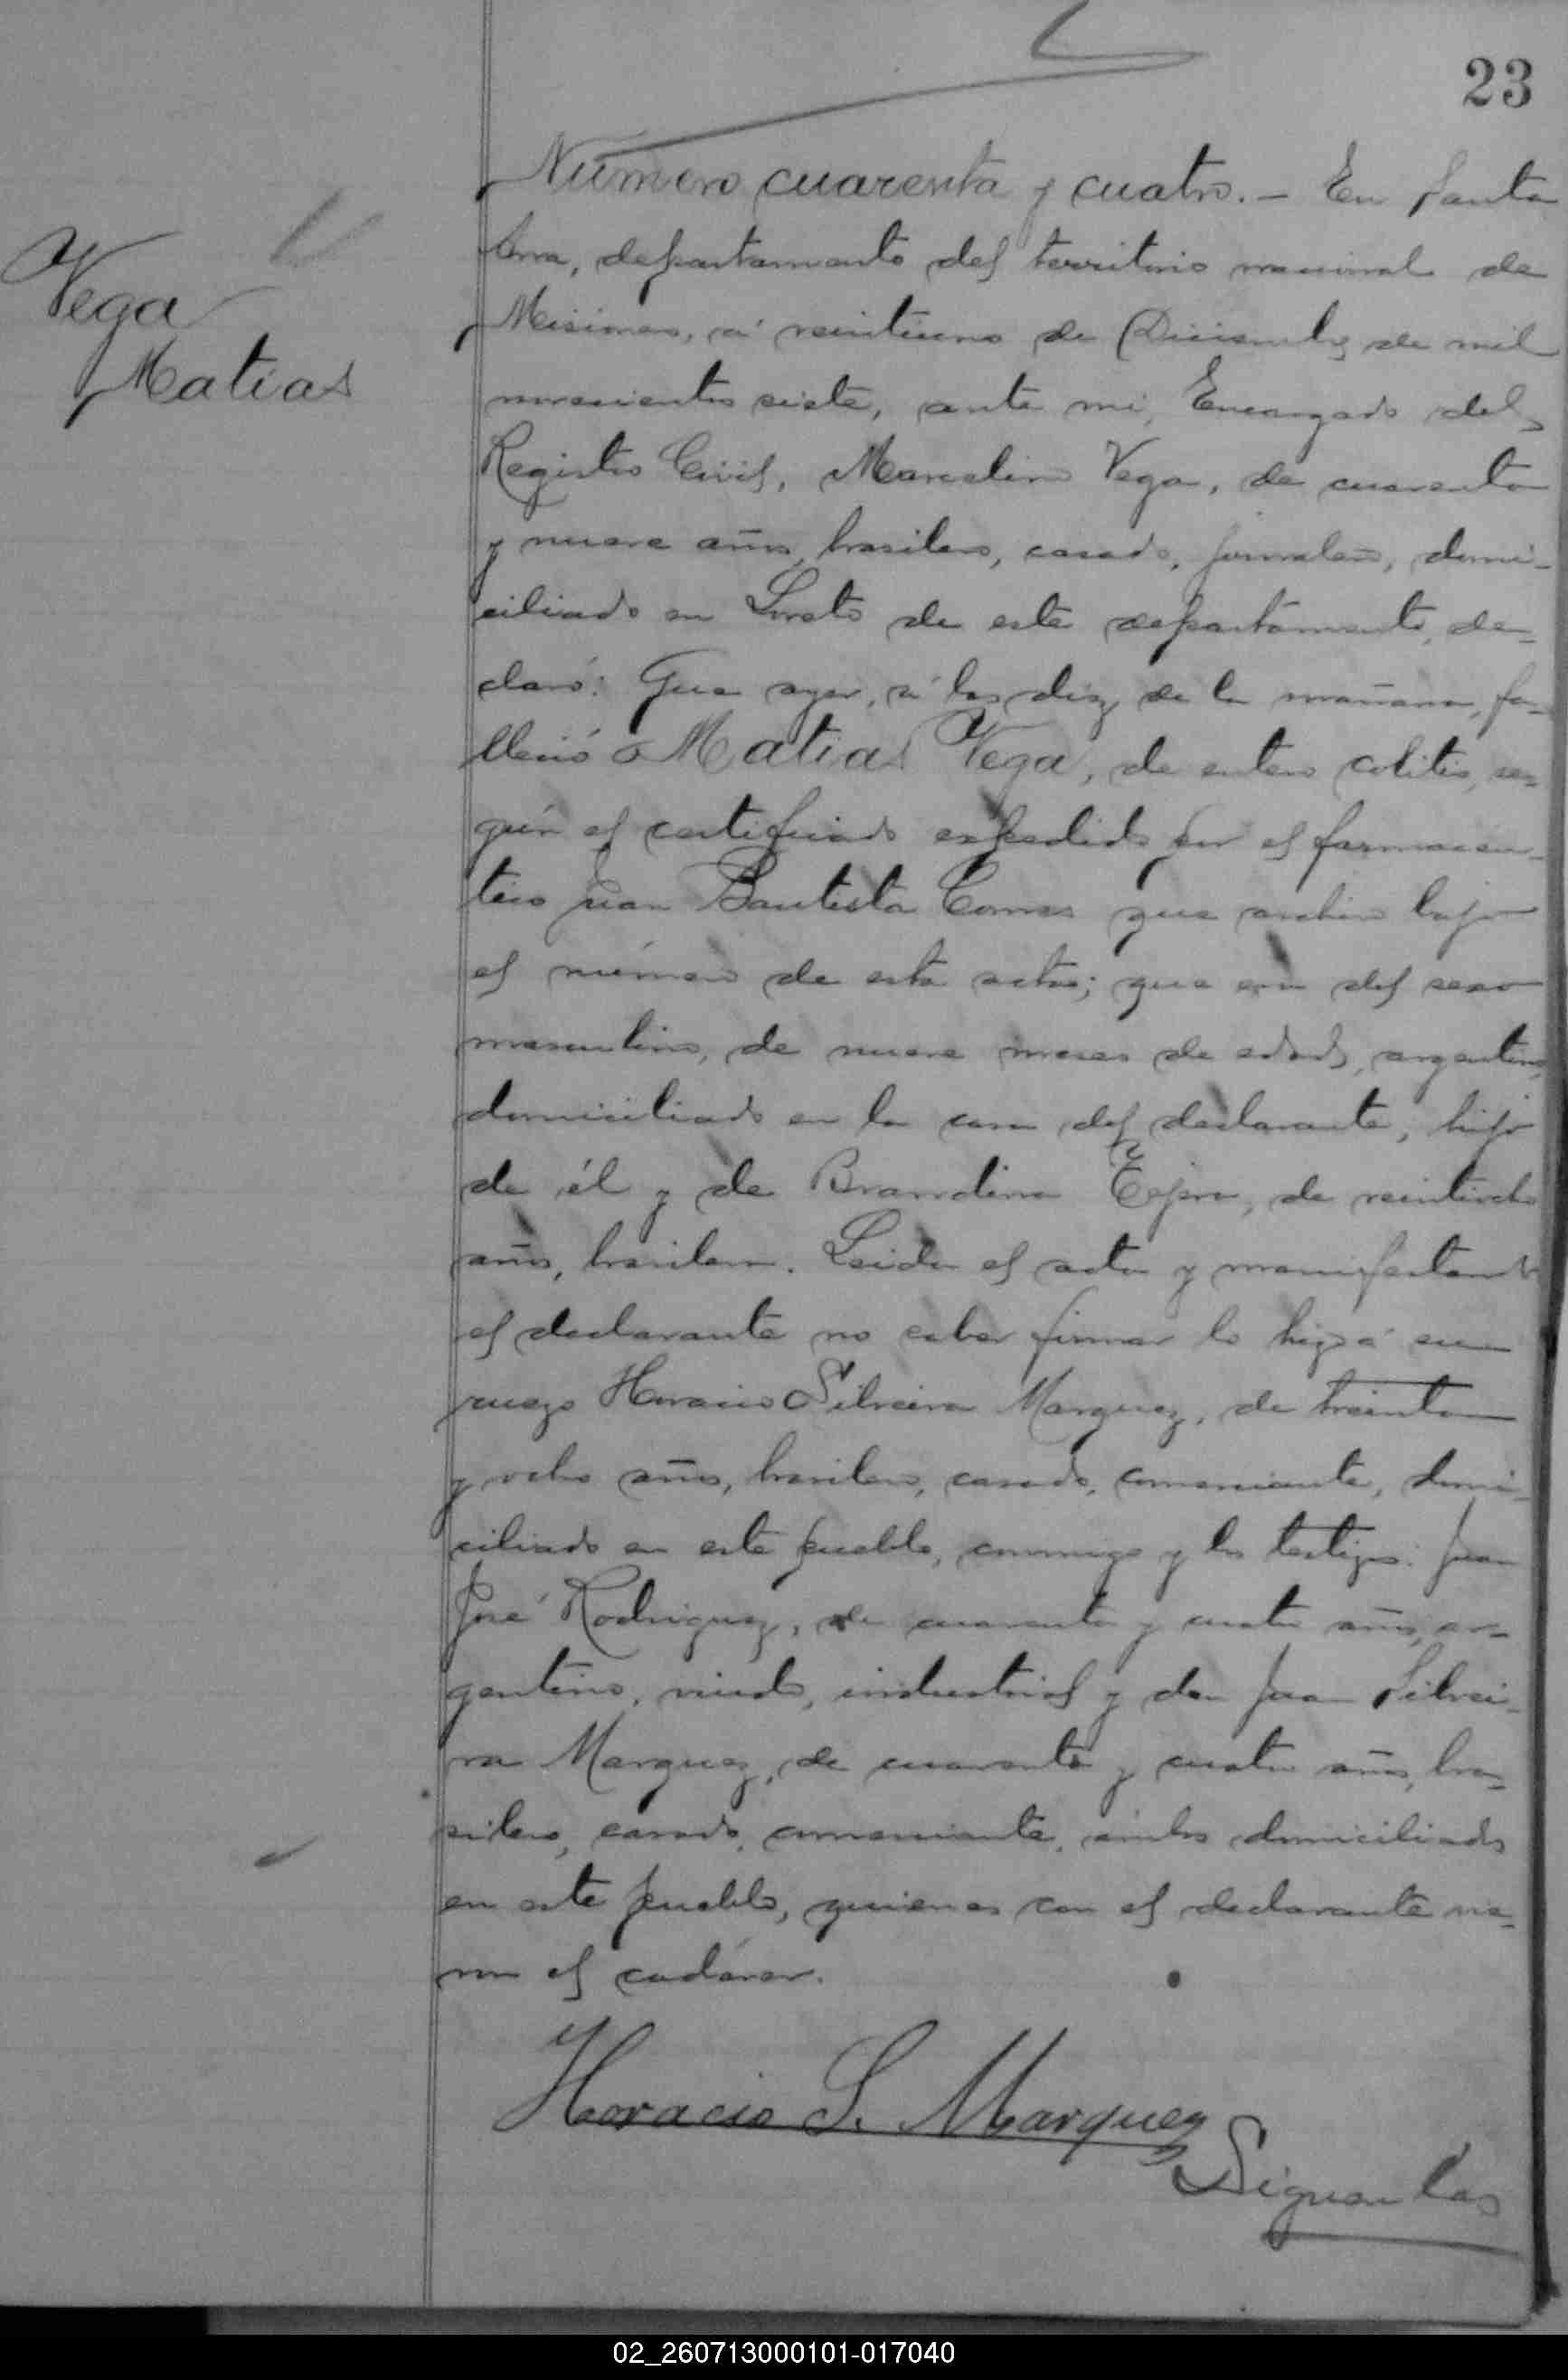 23
Vega
Matias
Número cuarenta y cuatro. - En Santa
Ana, departamento del territorio nacional de
Misiones, a' veintiuno de Diciembre de mil
novecientos siete, ante mi, Encargado del
Registro Civil, Marcelino Vega, de cuarenta
y nueve años, brasilero, casado, jornalero, domi-
ciliado en Loreto de este departamento, de-
claró: Que ayer, á las diez de la mañana, fa-
lleció Matias Vega, de entero colitis, se-
gún el certificado expedido por el farmaceu-
tico Juan Bautista Comas que archivo bajo
el número de esta acta; que era del sexo
masculino, de nueve meses de edad, argentino,
domiciliado en la casa del declarante, hijo
de él y de Brandina, de veintiocho
años, brasilera. Leida el acta y manifestando
el declarante no saber firmar lo hizo á su
ruego Horacio Silveira Marquez, de treinta
y ocho años, brasilero, casado, comerciante, domi-
ciliado en este pueblo, conmigo y los testigos: Juan
José Rodriguez, de cuarenta y cuatro años, ar-
gentino, viudo, industrial y don Juan Silvei-
ra Marquez, de cuarenta y cuatro años, bra-
silero, casado, comerciante, ambos domiciliados
en este pueblo, quienes con el declarante vie-
ron el cadáver.
Horacio S. Marquez
Siguen las
02_260713000101-017040